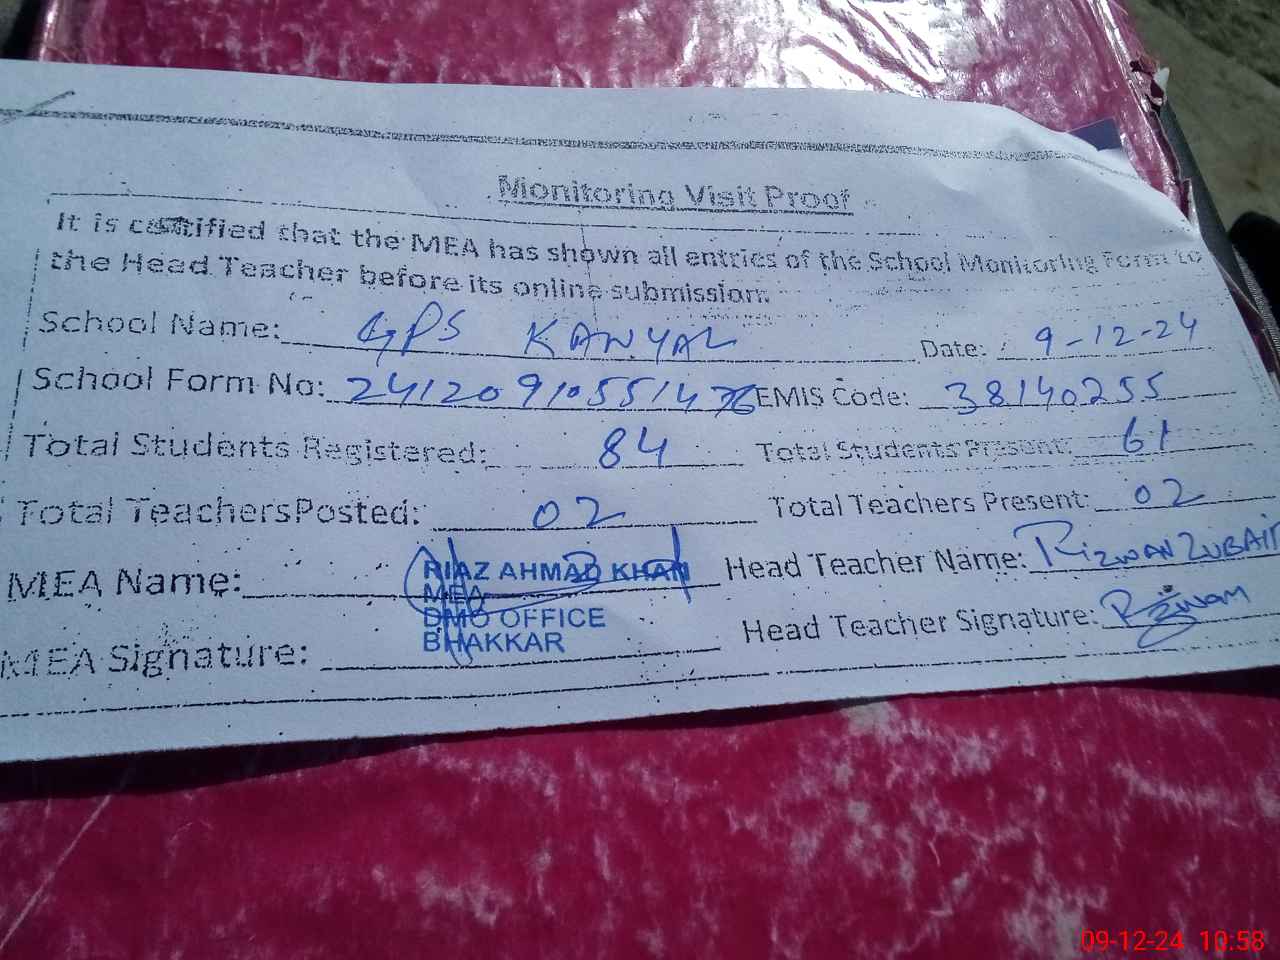 Monitoring Visit Proof
It is certified that the MEA has shown all entries of the School Monitoring Form to
the Head Teacher before its online submission.
School Name: GPS KANYAL Date: 9-12-24
School Form No: 241209105514 EMIS Code: 38140255
Total Students Registered: 84 Total Students Present: 61
Total TeachersPosted: 02 Total Teachers Present: 02
MEA Name: RIAZ AHMAD KHAN Head Teacher Name: RIZWAN ZUBAIR
MEA
DMO OFFICE
BHAKKAR
MEA Signature: Head Teacher Signature: Rizwan
09-12-24 10:58